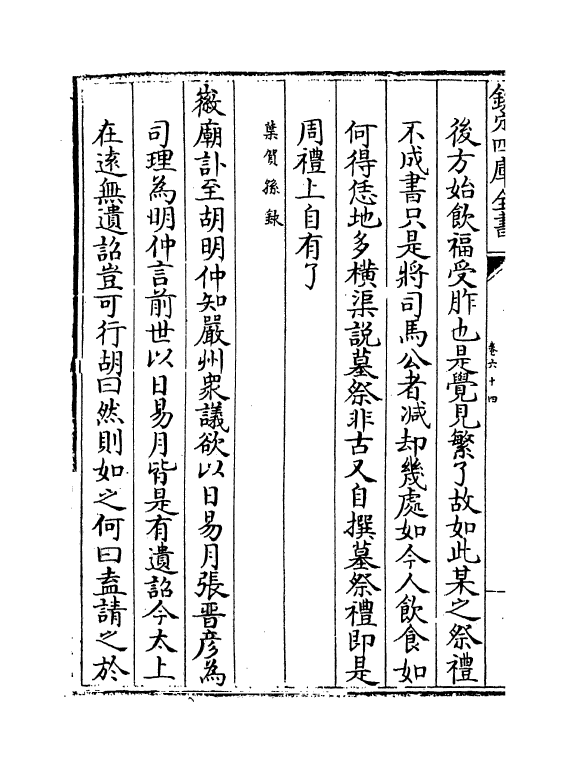 欽定四庫全書
卷六十四
後方始飲福受胙也是覺見繁了故如此某之祭禮
不成書只是將司馬公者减却幾處如今人飲食如
何得恁地多橫渠説墓祭非古又自撰墓祭禮即是
周禮上自有了
葉賀孫錄
徽廟訃至胡明仲知嚴州衆議欲以日易月張晋彦為
司理為明仲言前世以日易月皆是有遺詔今太上
在逺無遺詔豈可行胡曰然則如之何曰盍請之於